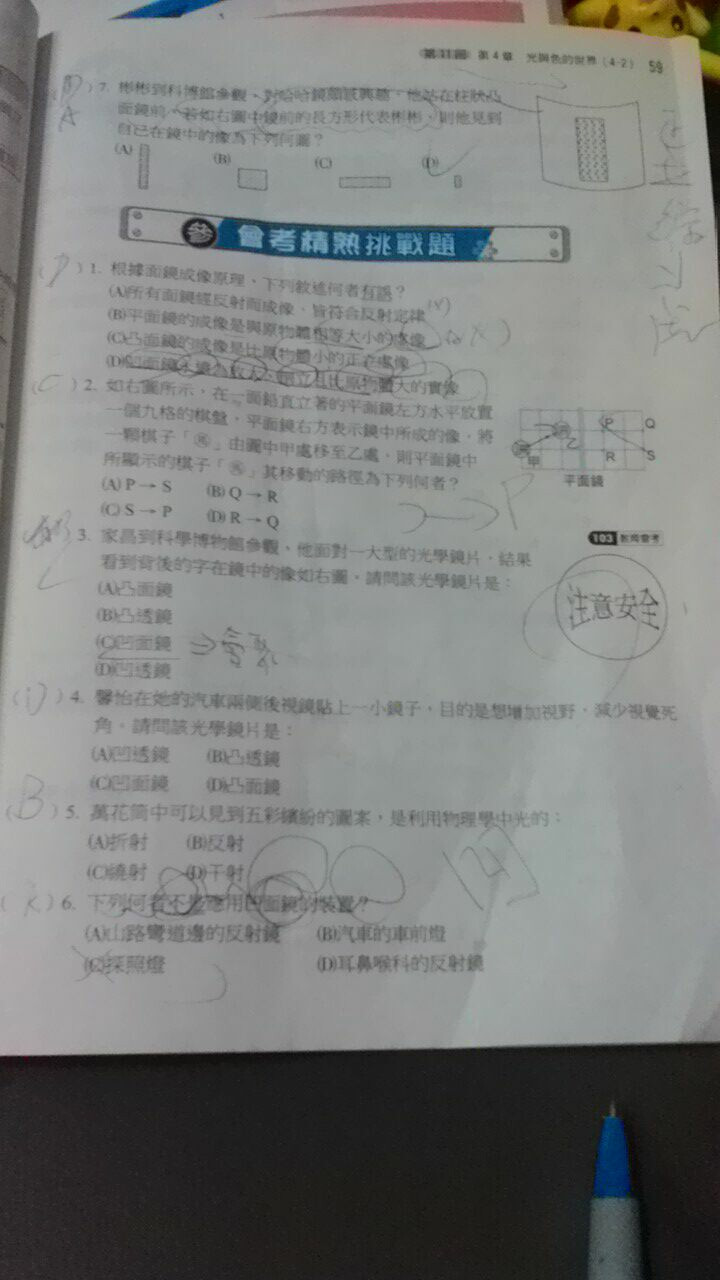 第11回 第4章 光與色的世界(4-2) 59
7. 彬彬到科博館參觀,對哈哈鏡頗感興趣,他站在柱狀凸
面鏡前,若如右圖中鏡前的長方形代表彬彬,則他見到
自己在鏡中的像為下列何圖?
(A) (B) (C) (D)
A
參 會考精熟挑戰題
1. 根據面鏡成像原理,下列敘述何者有誤?
(A)所有面鏡經反射而成像,皆符合反射定律
(B)平面鏡的成像是與原物體相等大小的虛像
(C)凸面鏡的成像是比原物體小的正立虛像
(D)凹面鏡
物體大的實像
(C) 2. 如右圖所示,在一面鉛直立著的平面鏡左方水平放置
一個九格的棋盤,平面鏡右方表示鏡中所成的像。將
一顆棋子「馬」由圖中甲處移至乙處,則平面鏡中
所顯示的棋子「馬」其移動的路徑為下列何者?
(A) P → S (B) Q → R
(C) S → P (D) R → Q
甲 乙 P Q R S
平面鏡
→ P
3. 家昌到科學博物館參觀,他面對一大型的光學鏡片,結果
看到背後的字在鏡中的像如右圖。請問該光學鏡片是:
(A)凸面鏡
(B)凸透鏡
(C)凹面鏡
(D)凹透鏡
103 教育會考
注意安全
4. 馨怡在她的汽車兩側後視鏡貼上一小鏡子,目的是想增加視野,減少視覺死
角。請問該光學鏡片是:
(A)凹透鏡 (B)凸透鏡
(C)凹面鏡 (D)凸面鏡
(B) 5. 萬花筒中可以見到五彩繽紛的圖案,是利用物理學中光的:
(A)折射 (B)反射
(C)繞射 (D)干射
6. 下列何者不是應用凹面鏡的裝置?
(A)山路彎道邊的反射鏡 (B)汽車的車前燈
(C)探照燈 (D)耳鼻喉科的反射鏡